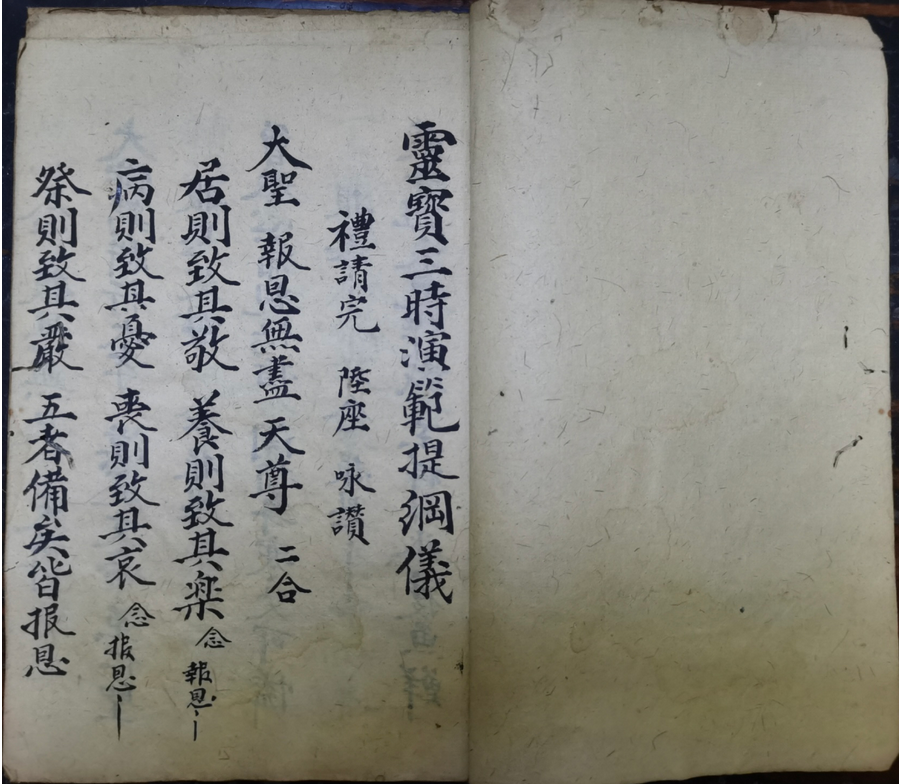 靈寶三時演範提綱儀
禮請完 陞座 咏讚
大聖 報恩無盡 天尊 二合
居則致其敬 養則致其樂 念 報恩〻
病則致其憂 喪則致其哀 念 报恩〻
祭則致其嚴 五者備矣皆报恩